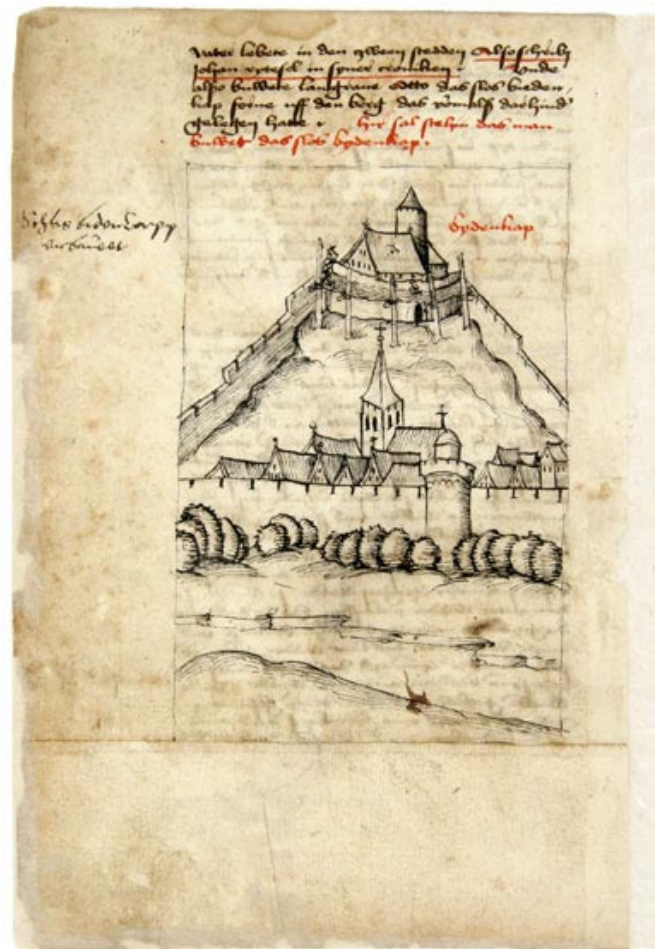 vater lebete in den zween stedden Also schribt
Johan rytesel in syner croniken Unde
also buwete lantgraue Otto das slos bieden,
kap forne uff den berg das vormals darhind
gelegen hatte hir sal stehin das man
buwet das slos bydenkap.
bydenkap
Schlos